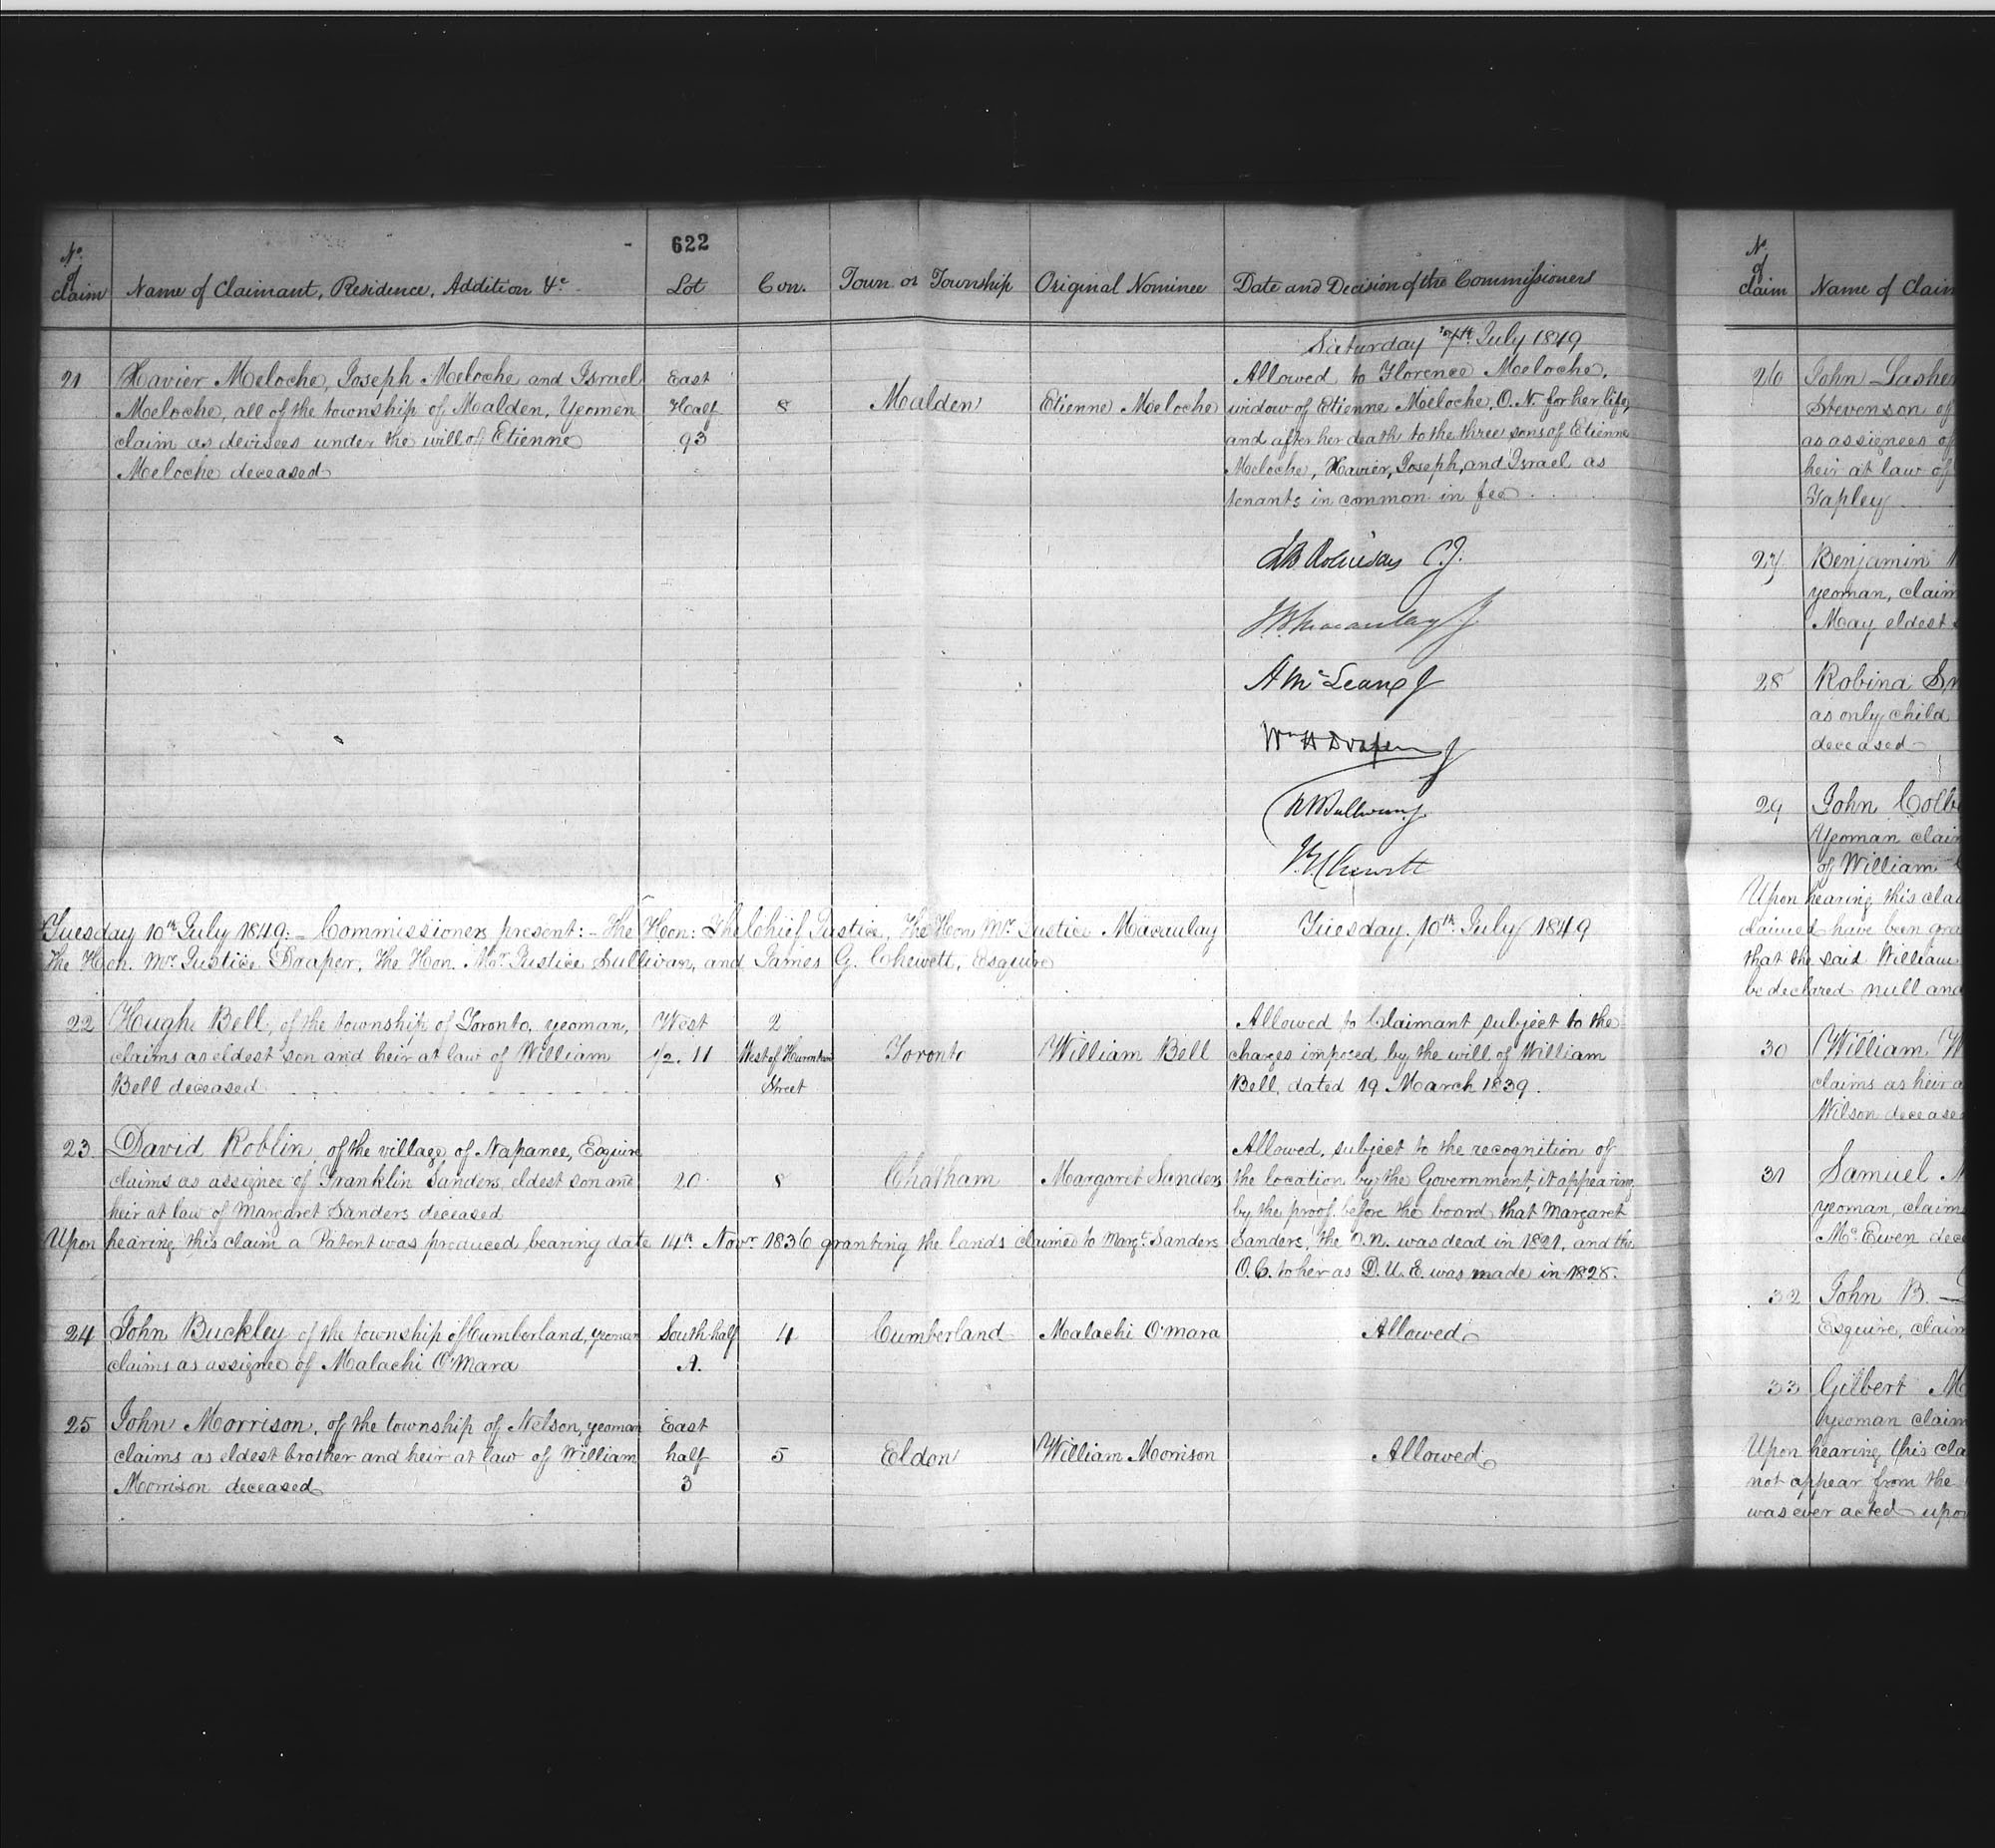 622
No. of claim Name of Claimant, Residence, Addition &c. Lot Con. Town or Township Original Nominee Date and Decision of the Commissioners
Saturday 7th July 1849
21 Xavier Meloche, Joseph Meloche and Israel East Allowed to Florence Meloche,
Meloche, all of the township of Malden, Yeomen Half 8 Malden Etienne Meloche widow of Etienne Meloche, O.N. for her life,
claim as devisees under the will of Etienne 93 and after her death to the three sons of Etienne
Meloche deceased Meloche, Xavier, Joseph, and Israel as
tenants in common in fee
J B Robinson C.J.
J B Macaulay J.
A McLean J
Wm H Draper J
R B Sullivan J.
J G Chewett
Tuesday 10th July 1849:- Commissioners present:- The Hon: The Chief Justice, The Hon Mr. Justice Macaulay Tuesday 10th July 1849
The Hon. Mr. Justice Draper, The Hon. Mr. Justice Sullivan, and James G. Chewett, Esquire
22 Hugh Bell, of the township of Toronto, yeoman, West 2 Allowed to Claimant subject to the
claims as eldest son and heir at law of William 1/2. 11 West of Hurontario Toronto William Bell charges imposed by the will of William
Bell deceased Street Bell, dated 19 March 1839.
23 David Roblin, of the village of Napanee, Esquire Allowed, subject to the recognition of
claims as assignee of Franklin Sanders, eldest son and 20 8 Chatham Margaret Sanders the location by the Government, it appearing
heir at law of Margaret Sanders deceased by the proof before the board that Margaret
Upon hearing this claim a Patent was produced bearing date 14th Novr 1836 granting the lands claimed to Margt. Sanders Sanders, the O.N. was dead in 1821, and the
O.C. to her as D.U.E. was made in 1828.
24 John Buckley of the township of Cumberland, yeoman South half 4 Cumberland Malachi O'Mara Allowed
claims as assignee of Malachi O'Mara A.
25 John Morrison, of the township of Nelson, yeoman East
claims as eldest brother and heir at law of William half 5 Eldon William Morrison Allowed
Morrison deceased 3
No. of claim Name of Claim
26 John Lasher
Stevenson of
as assignees of
heir at law of
Tapley
27 Benjamin
yeoman, claim
May eldest
28 Robina
as only child
deceased
29 John
Yeoman claim
of William
Upon hearing this
claimed have been
that the said William
be declared null and
30 William
claims as heir
Wilson deceased
31 Samuel
yeoman, claims
McEwen
32 John B.
Esquire, claim
33 Gilbert
yeoman claim
Upon hearing this
not appear from the
was ever acted upon